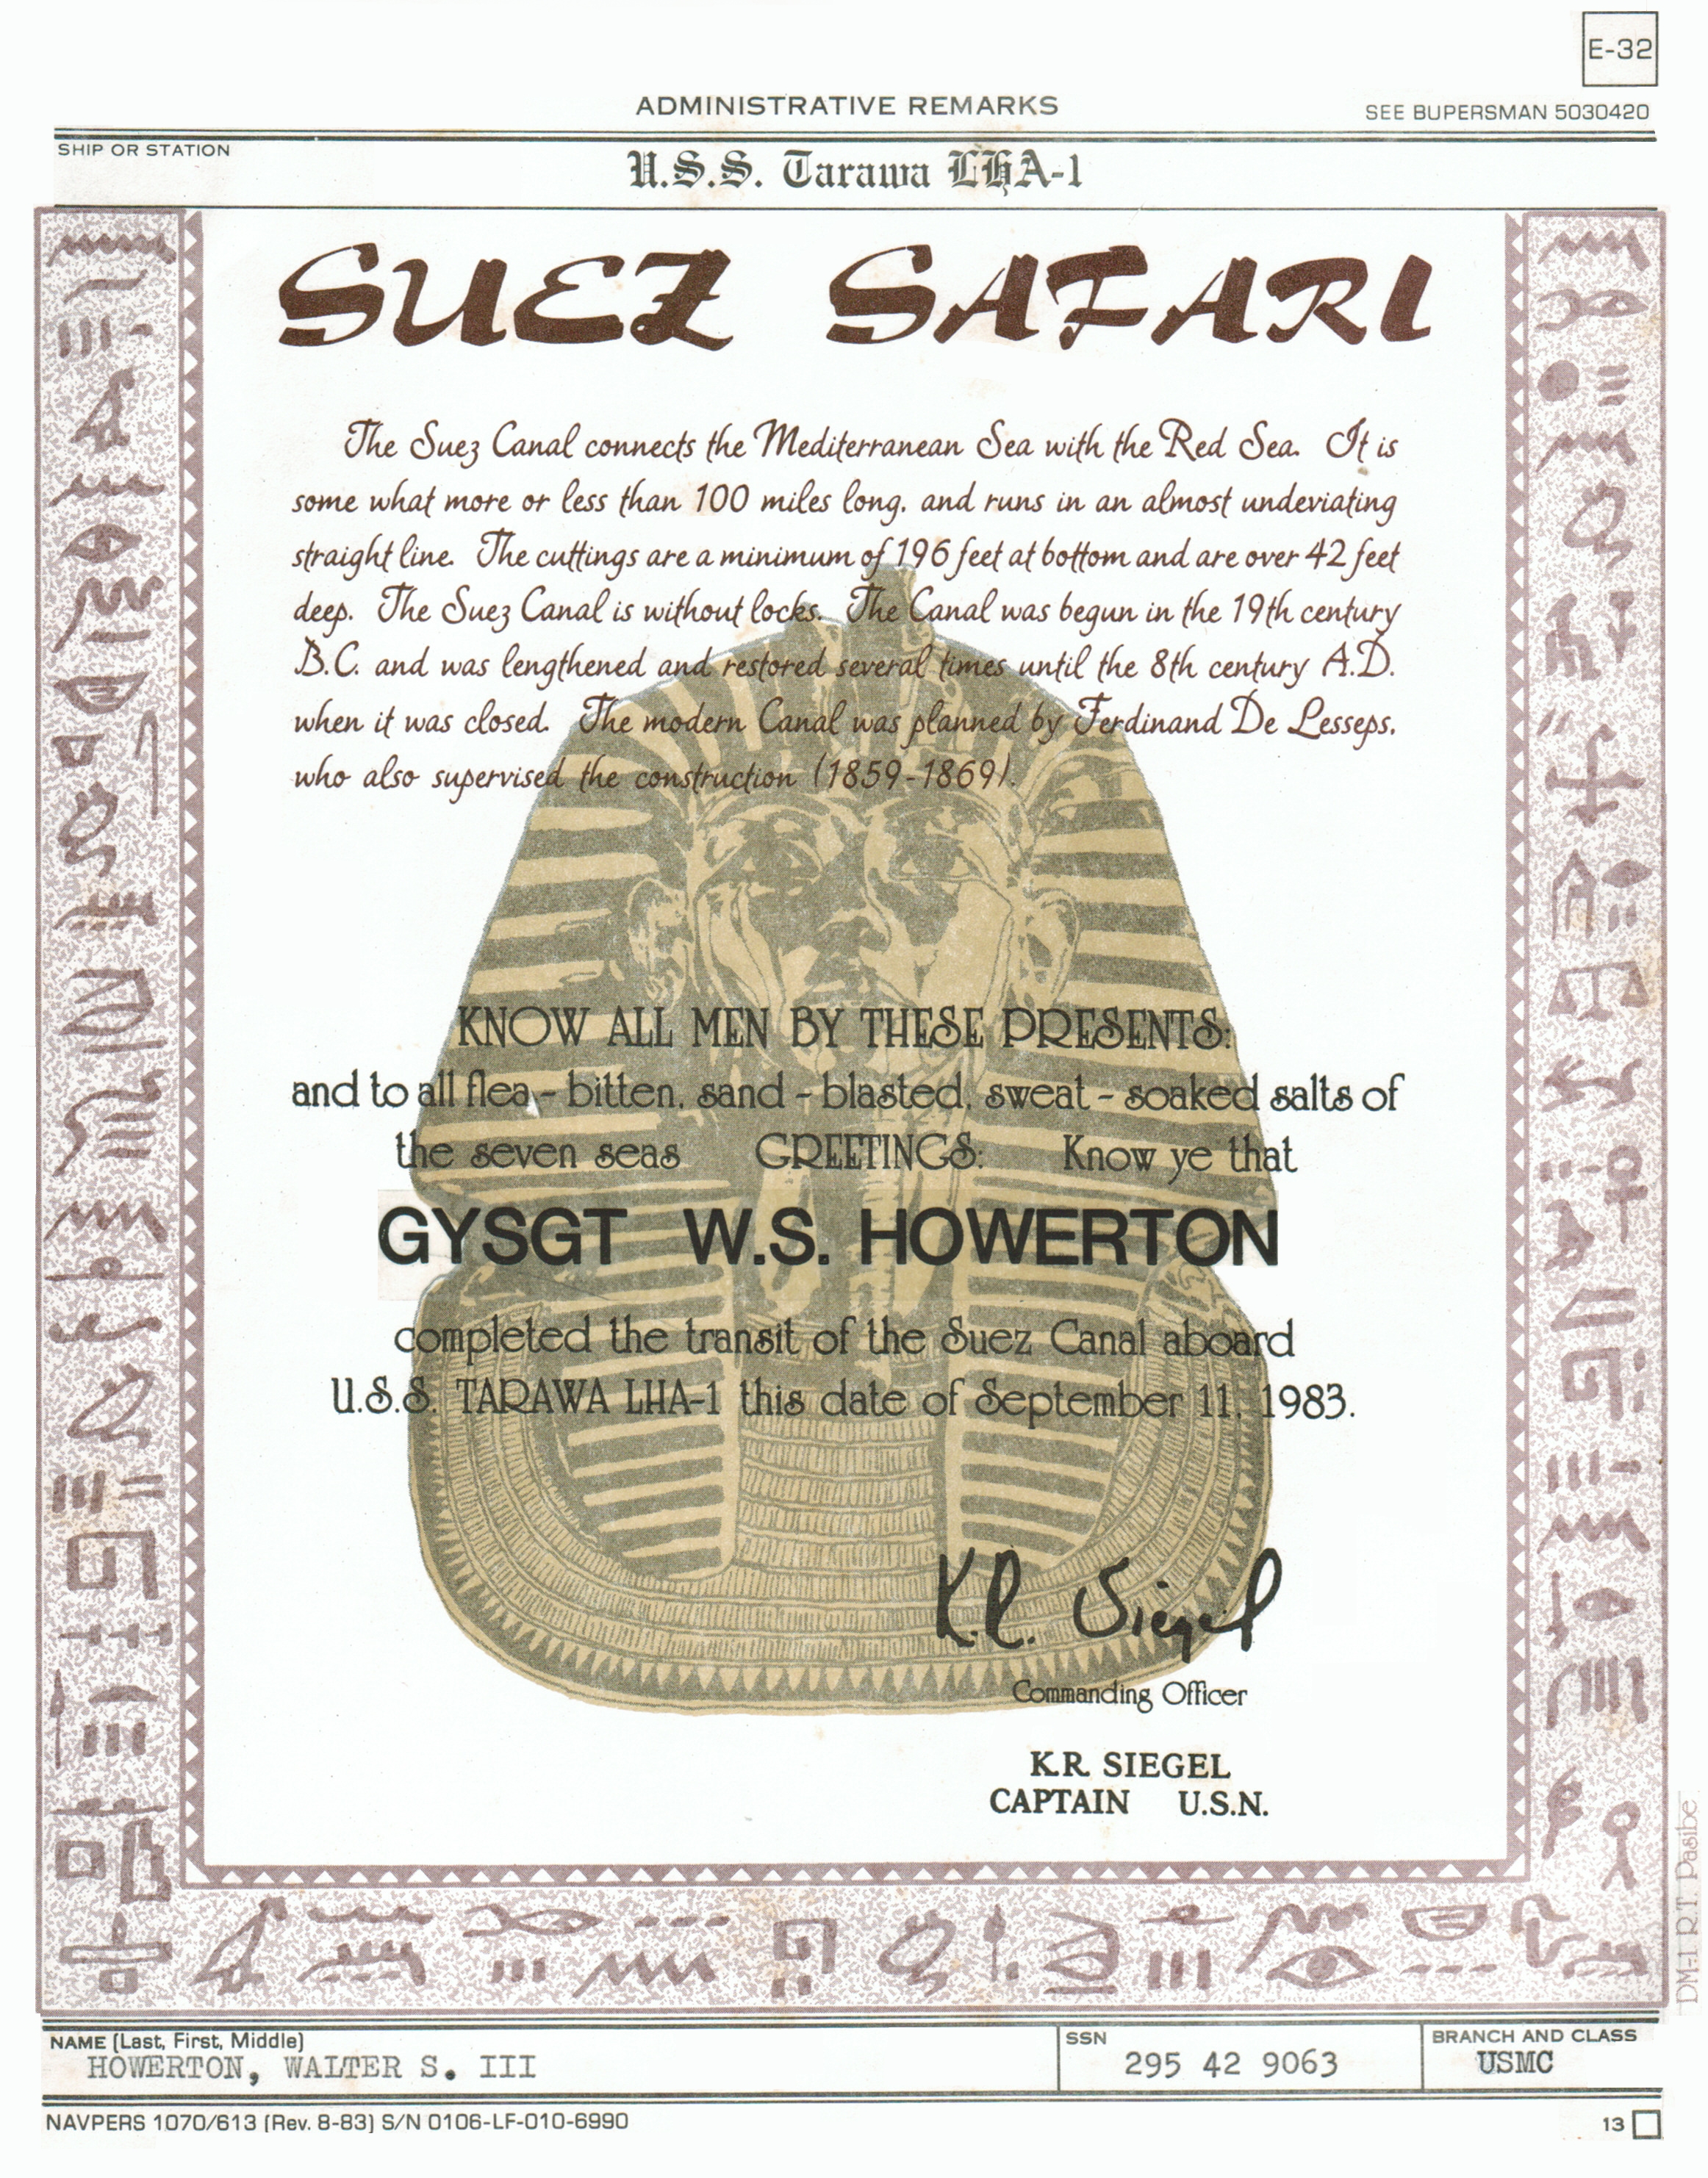 E-32
ADMINISTRATIVE REMARKS
SEE BUPERSMAN 5030420
SHIP OR STATION
U.S.S. Tarawa LHA-1
SUEZ SAFARI
The Suez Canal connects the Mediterranean Sea with the Red Sea. It is
some what more or less than 100 miles long, and runs in an almost undeviating
straight line. The cuttings are a minimum of 196 feet at bottom and are over 42 feet
deep. The Suez Canal is without locks. The Canal was begun in the 19th century
B.C. and was lengthened and restored several times until the 8th century A.D.
when it was closed. The modern Canal was planned by Ferdinand De Lesseps,
who also supervised the construction (1859-1869).
KNOW ALL MEN BY THESE PRESENTS:
and to all flea - bitten, sand - blasted, sweat - soaked salts of
the seven seas GREETINGS: Know ye that
GYSGT W.S. HOWERTON
completed the transit of the Suez Canal aboard
U.S.S. TARAWA LHA-1 this date of September 11, 1983.
K.R. Siegel
Commanding Officer
K.R. SIEGEL
CAPTAIN U.S.N.
DM-1 R.T. Pasibe
NAME (Last, First, Middle)
HOWERTON, WALTER S. III
SSN
295 42 9063
BRANCH AND CLASS
USMC
NAVPERS 1070/613 (Rev. 8-83) S/N 0106-LF-010-6990
13